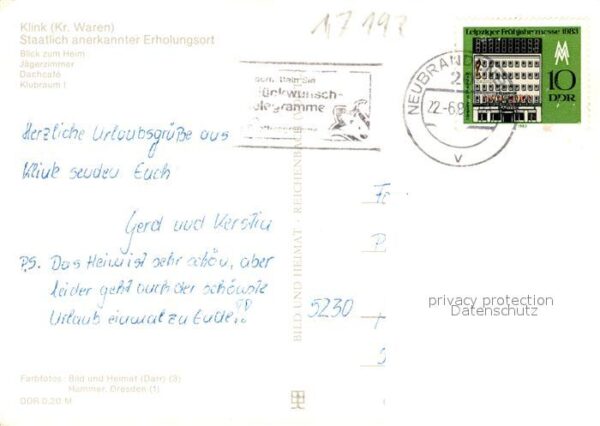 Klink (Kr. Waren)
Staatlich anerkannter Erholungsort
Blick zum Heim
Jägerzimmer
Dachcafé
Klubraum I
17 192
Leipziger Frühjahrsmesse 1983
10
DDR
NEUBRAND
22.-6.8
v
ückwunsch-
elegramme
Herzliche Urlaubsgrüße aus
Klink senden Euch
Gerd und Kerstin
PS. Das Heim ist sehr schön, aber
leider geht auch der schönste
Urlaub einmal zu Ende!!
BILD UND HEIMAT · REICHENBACH
5230
privacy protection
Datenschutz
Farbfotos: Bild und Heimat (Darr) (3)
Hammer, Dresden (1)
DDR 0,20 M